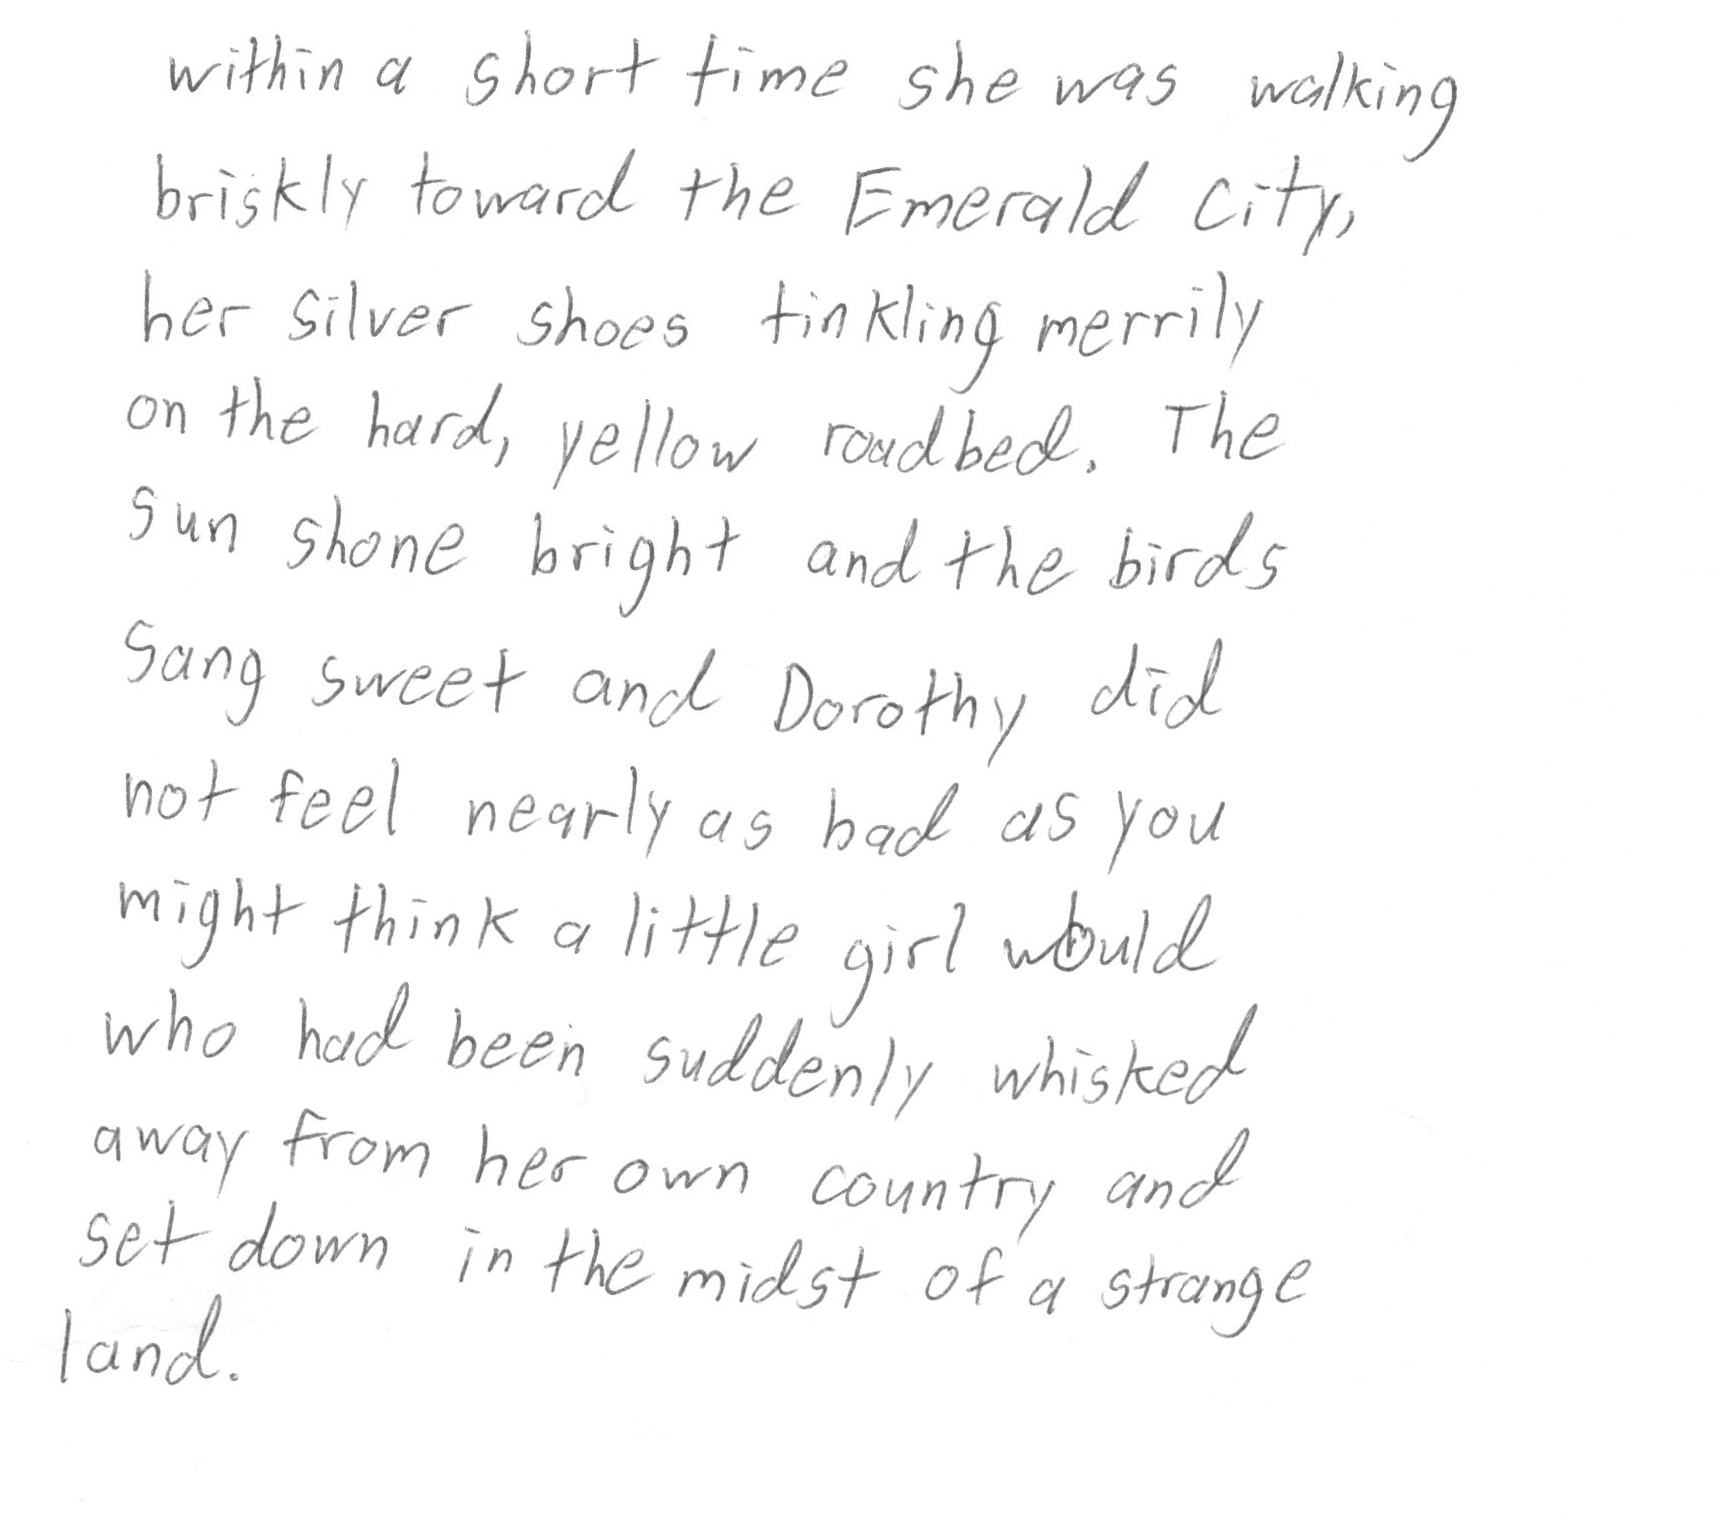 within a short time she was walking
briskly toward the Emerald City,
her silver shoes tinkling merrily
on the hard, yellow roadbed. The
sun shone bright and the birds
sang sweet and Dorothy did
not feel nearly as bad as you
might think a little girl would
who had been suddenly whisked
away from her own country and
set down in the midst of a strange
land.